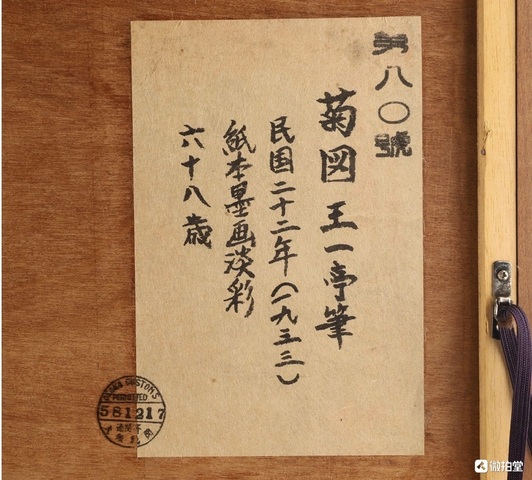 第八〇號
菊図 王一亭筆
民国二十二年(一九三三)
紙本墨画淡彩
六十八歳
CUSTOMS
PERMITTED
581217
微拍堂